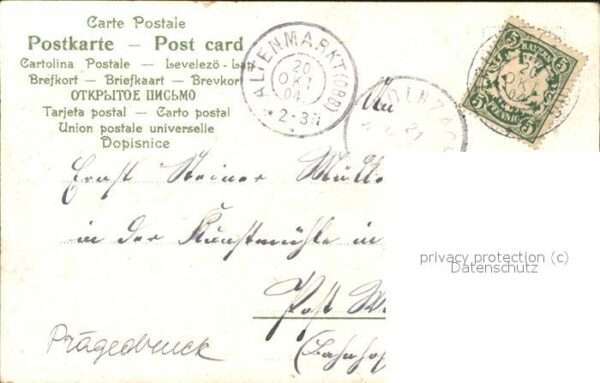 Carte Postale
Postkarte — Post card
Cartolina Postale — Levelezö-La
Brefkort — Briefkaart — Brevkor
ОТКРЫТОЕ ПИСЬМО
Tarjeta postal — Carto postal
Union postale universelle
Dopisnice
ALTENMARKT (OBB)
20
OKT
04
2-3N
BAYERN
5
5
PFENNIG
An
Ernst Steiner Müll
in der Kunstmühle in
Post
(Bahnhof
Prägedruck
privacy protection (c)
Datenschutz